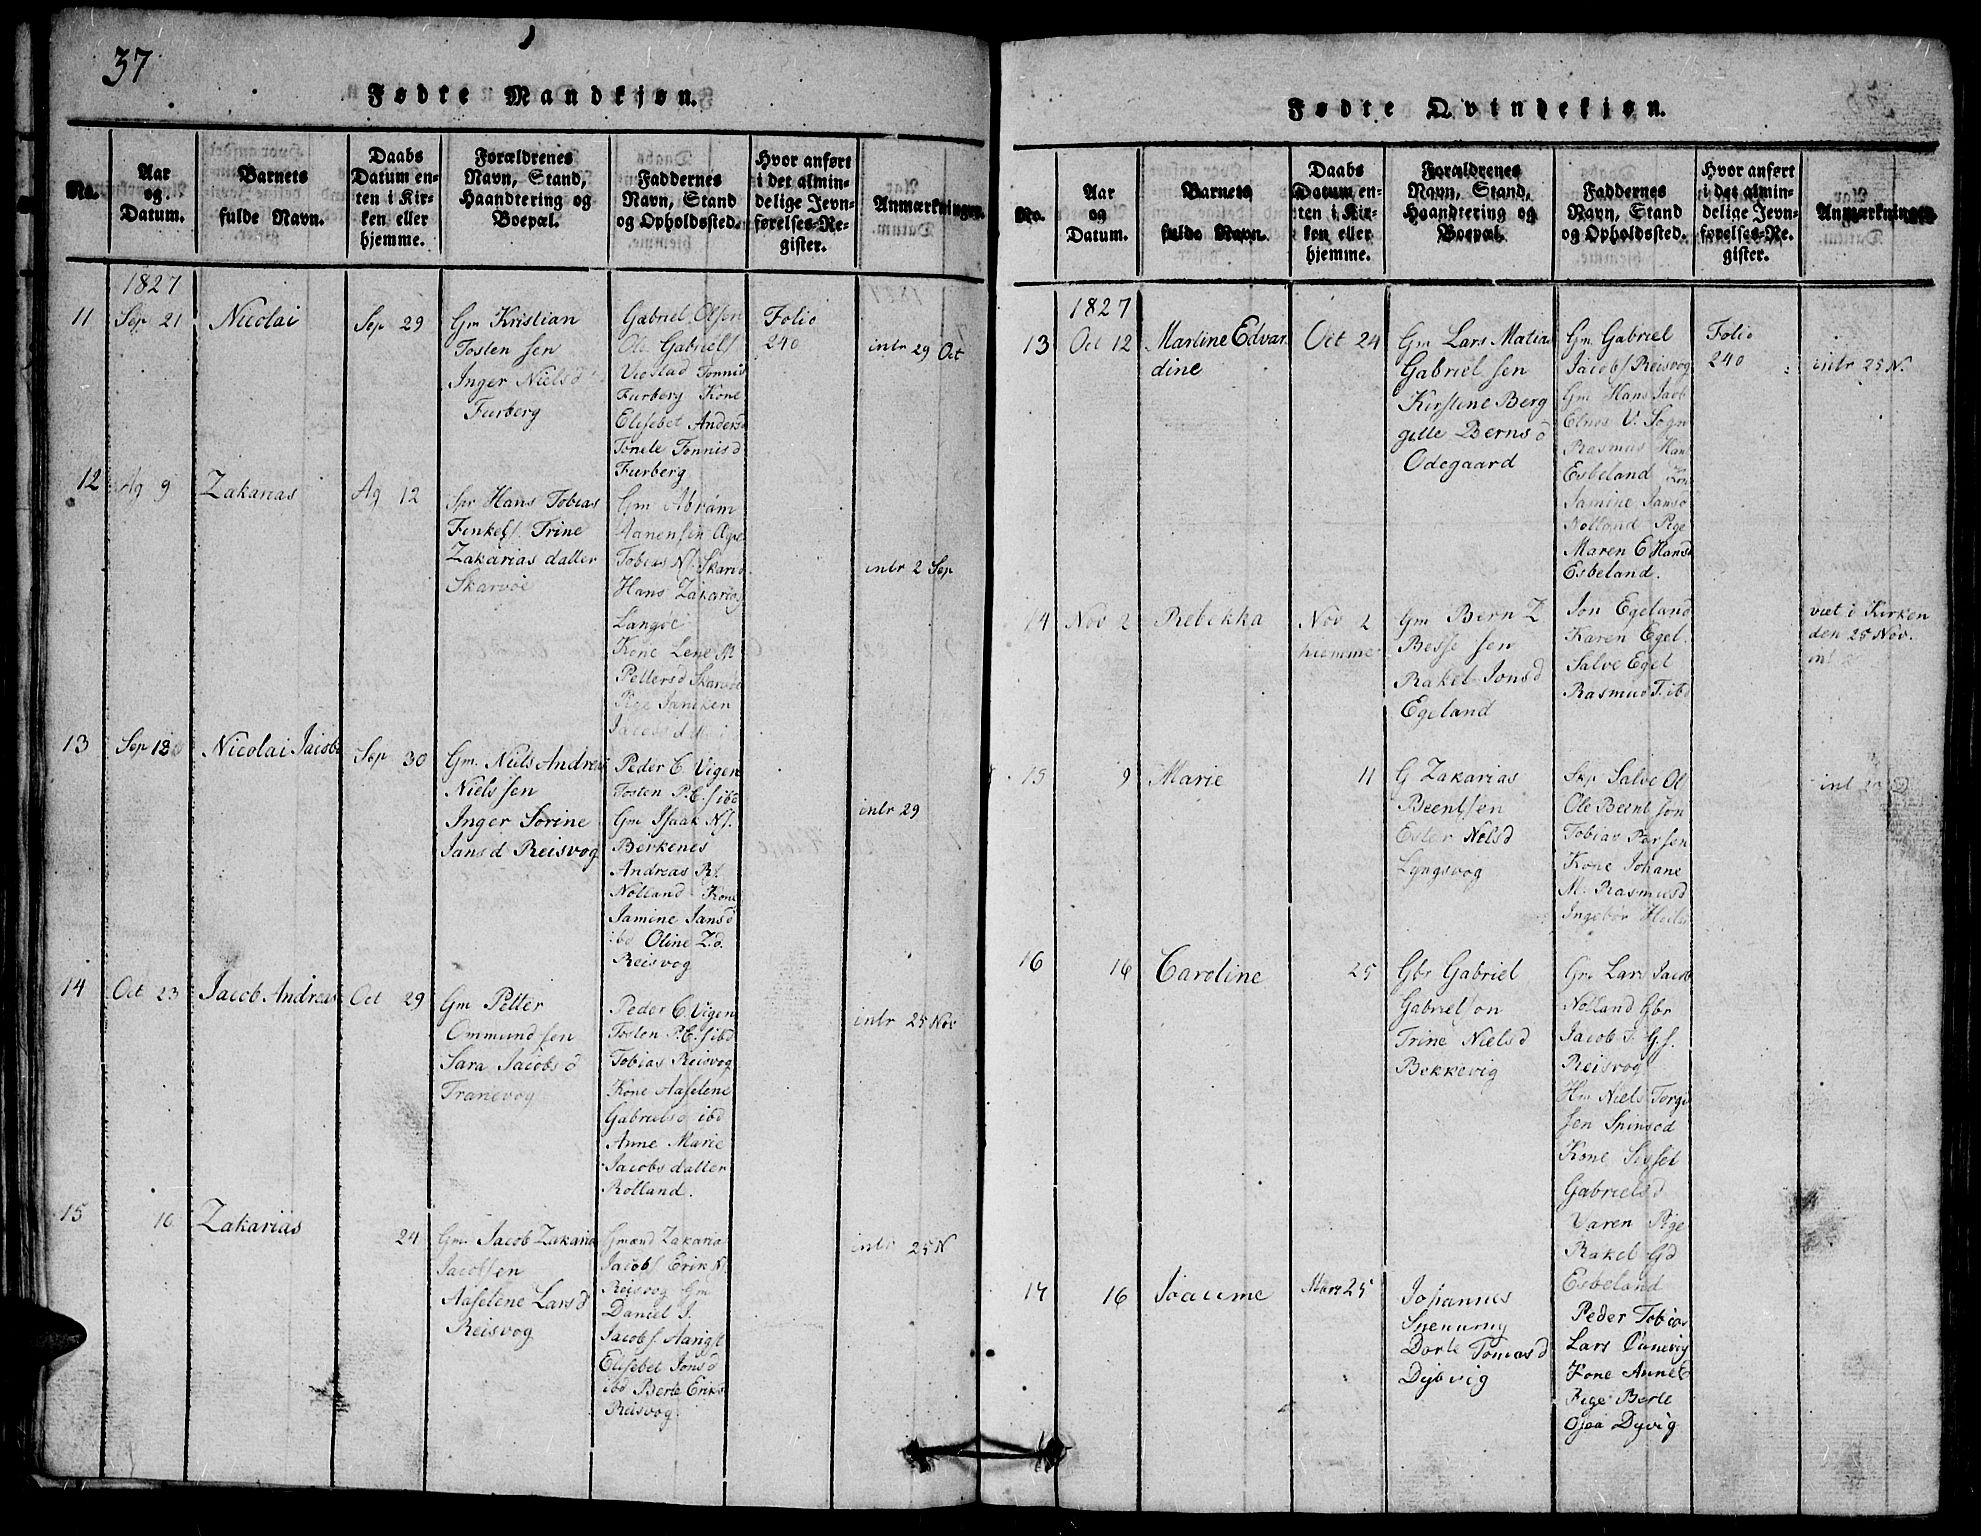 37
Fødte Mandkjøn.
No.
Aar
og
Datum.
Barnets
fulde Navn.
Daabs
Datum en-
ten i Kir-
ken eller
hjemme.
Forældrenes
Navn, Stand,
Haandtering og
Boepæl.
Faddernes
Navn, Stand
og Opholdssted.
Hvor anført
i det almin-
delige Jevn-
førelses-Re-
gister.
Anmærkninger.
1827
11
Sep 21
Nicolai
Sep 29
Gm Kristian
Tosten sen
Inger Niels d
Furberg
Gabriel Olsen
Ole Gabriels
Tonnis
Furberg Kone
Elisebet Anders
Tonnis d
Furberg
Folio
240
intr 29 Oct
12
Ag 9
Zakarias
Ag 12
Hans Tobias
Trine
Zakarias datter
Skarvøe
Gm Abram
Aanensen
Tobias N
Hans Zakarias
Langøe
Kone Lene M
Petters d Skarvøe
Pige Janiken
intr 2 Sep
13
Sep
Nicolai Jacob
Sep 30
Gm. Niels Andreas
Niels sen
Inger Sorine
Jans d Reisvog
Peder C. Vigen
Tosten P.C. s ibd
Gm Isaak Ns.
Birkenes
Andreas Rs.
Nolland Kone
Jamine Jans d
ibd Oline Z.d.
Reisvog
intr 29
14
Oct 23
Jacob Andreas
Oct 29
Gm Petter
Ommund sen
Sara Jacobs d
Tranevog
Peder C. Vigen
Tosten P.C. s ibd
Tobias Reisvog
Kone Aaselene
Gabriels d ibd
Anne Marie
Jacobs datter
Rolland.
intr 25 Nov
15
16
Zakarias
24
Gm Jacob Zakaria
Jacobsen
Aaselene Lars d
Reisvog
Gmænd Zakaria
Jacobs Erik N.
Reisvog Gm
Daniel J.
Jacobs
Elisebet Jons d
ibd Berte Eriks
Reisvog
intr 25 N
Fødte Qvindekjøn.
No.
Aar
og
Datum.
Barnets
fulde Navn.
Daabs
Datum en-
ten i Kir-
ken eller
hjemme.
Forældrenes
Navn, Stand,
Haandtering og
Boepæl.
Faddernes
Navn, Stand
og Opholdssted.
Hvor anført
i det almin-
delige Jevn-
førelses-Re-
gister.
Anmærkninger.
1827
13
Oct 12
Martine Edvar
dine
Oct 24
Gm Lars Matias
Gabriel sen
Kirstine Berg
gitte Berns d
Odegaard
Gm Gabriel
Jacobs Reisvog
Gm Hans Jacob
V. Sogn
Rasmus Han
Esbeland
Jamine Jans d
Nolland Pige
Maren E Hans
Esbeland.
Folio
240
intr 25 N.
14
Nov 2
Rebekka
Nov 2
hiemme
Gm Bern Z
Besse sen
Rakel Jons d
Egeland
Jon Egeland
Karen Egel
Salve Egel
Rasmus T. ibd
væt i Kirken
den 25 Nov.
15
9
Marie
11
G Zakarias
Beentsen
Ester Nels d
Lyngsvog
Salve Ol
Ole Beent søn
Tobias Persen
Kone Johane
M. Rasmus d
Ingebor
16
16
Caroline
25
Gbr Gabriel
Gabriel son
Trine Niels d
Bekkevig
Gm Lars Jacob
Nolland Gbr
Jacob T. G s.
Reisvog
Hm Niels Torge
sen Spinsod
Kone Sisset
Gabriels d
Varen Pige
Rakel G d
Esbeland
17
16
25
Johannes
Dorte Tomas d
Dybvig
Peder Tobias
Lars
Kone Anne
Pige Berte
Dyvig